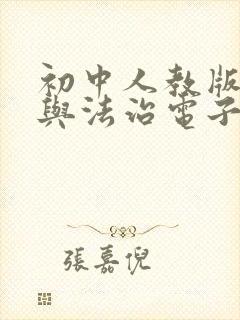 初中人教版
與法治電子
張嘉倪